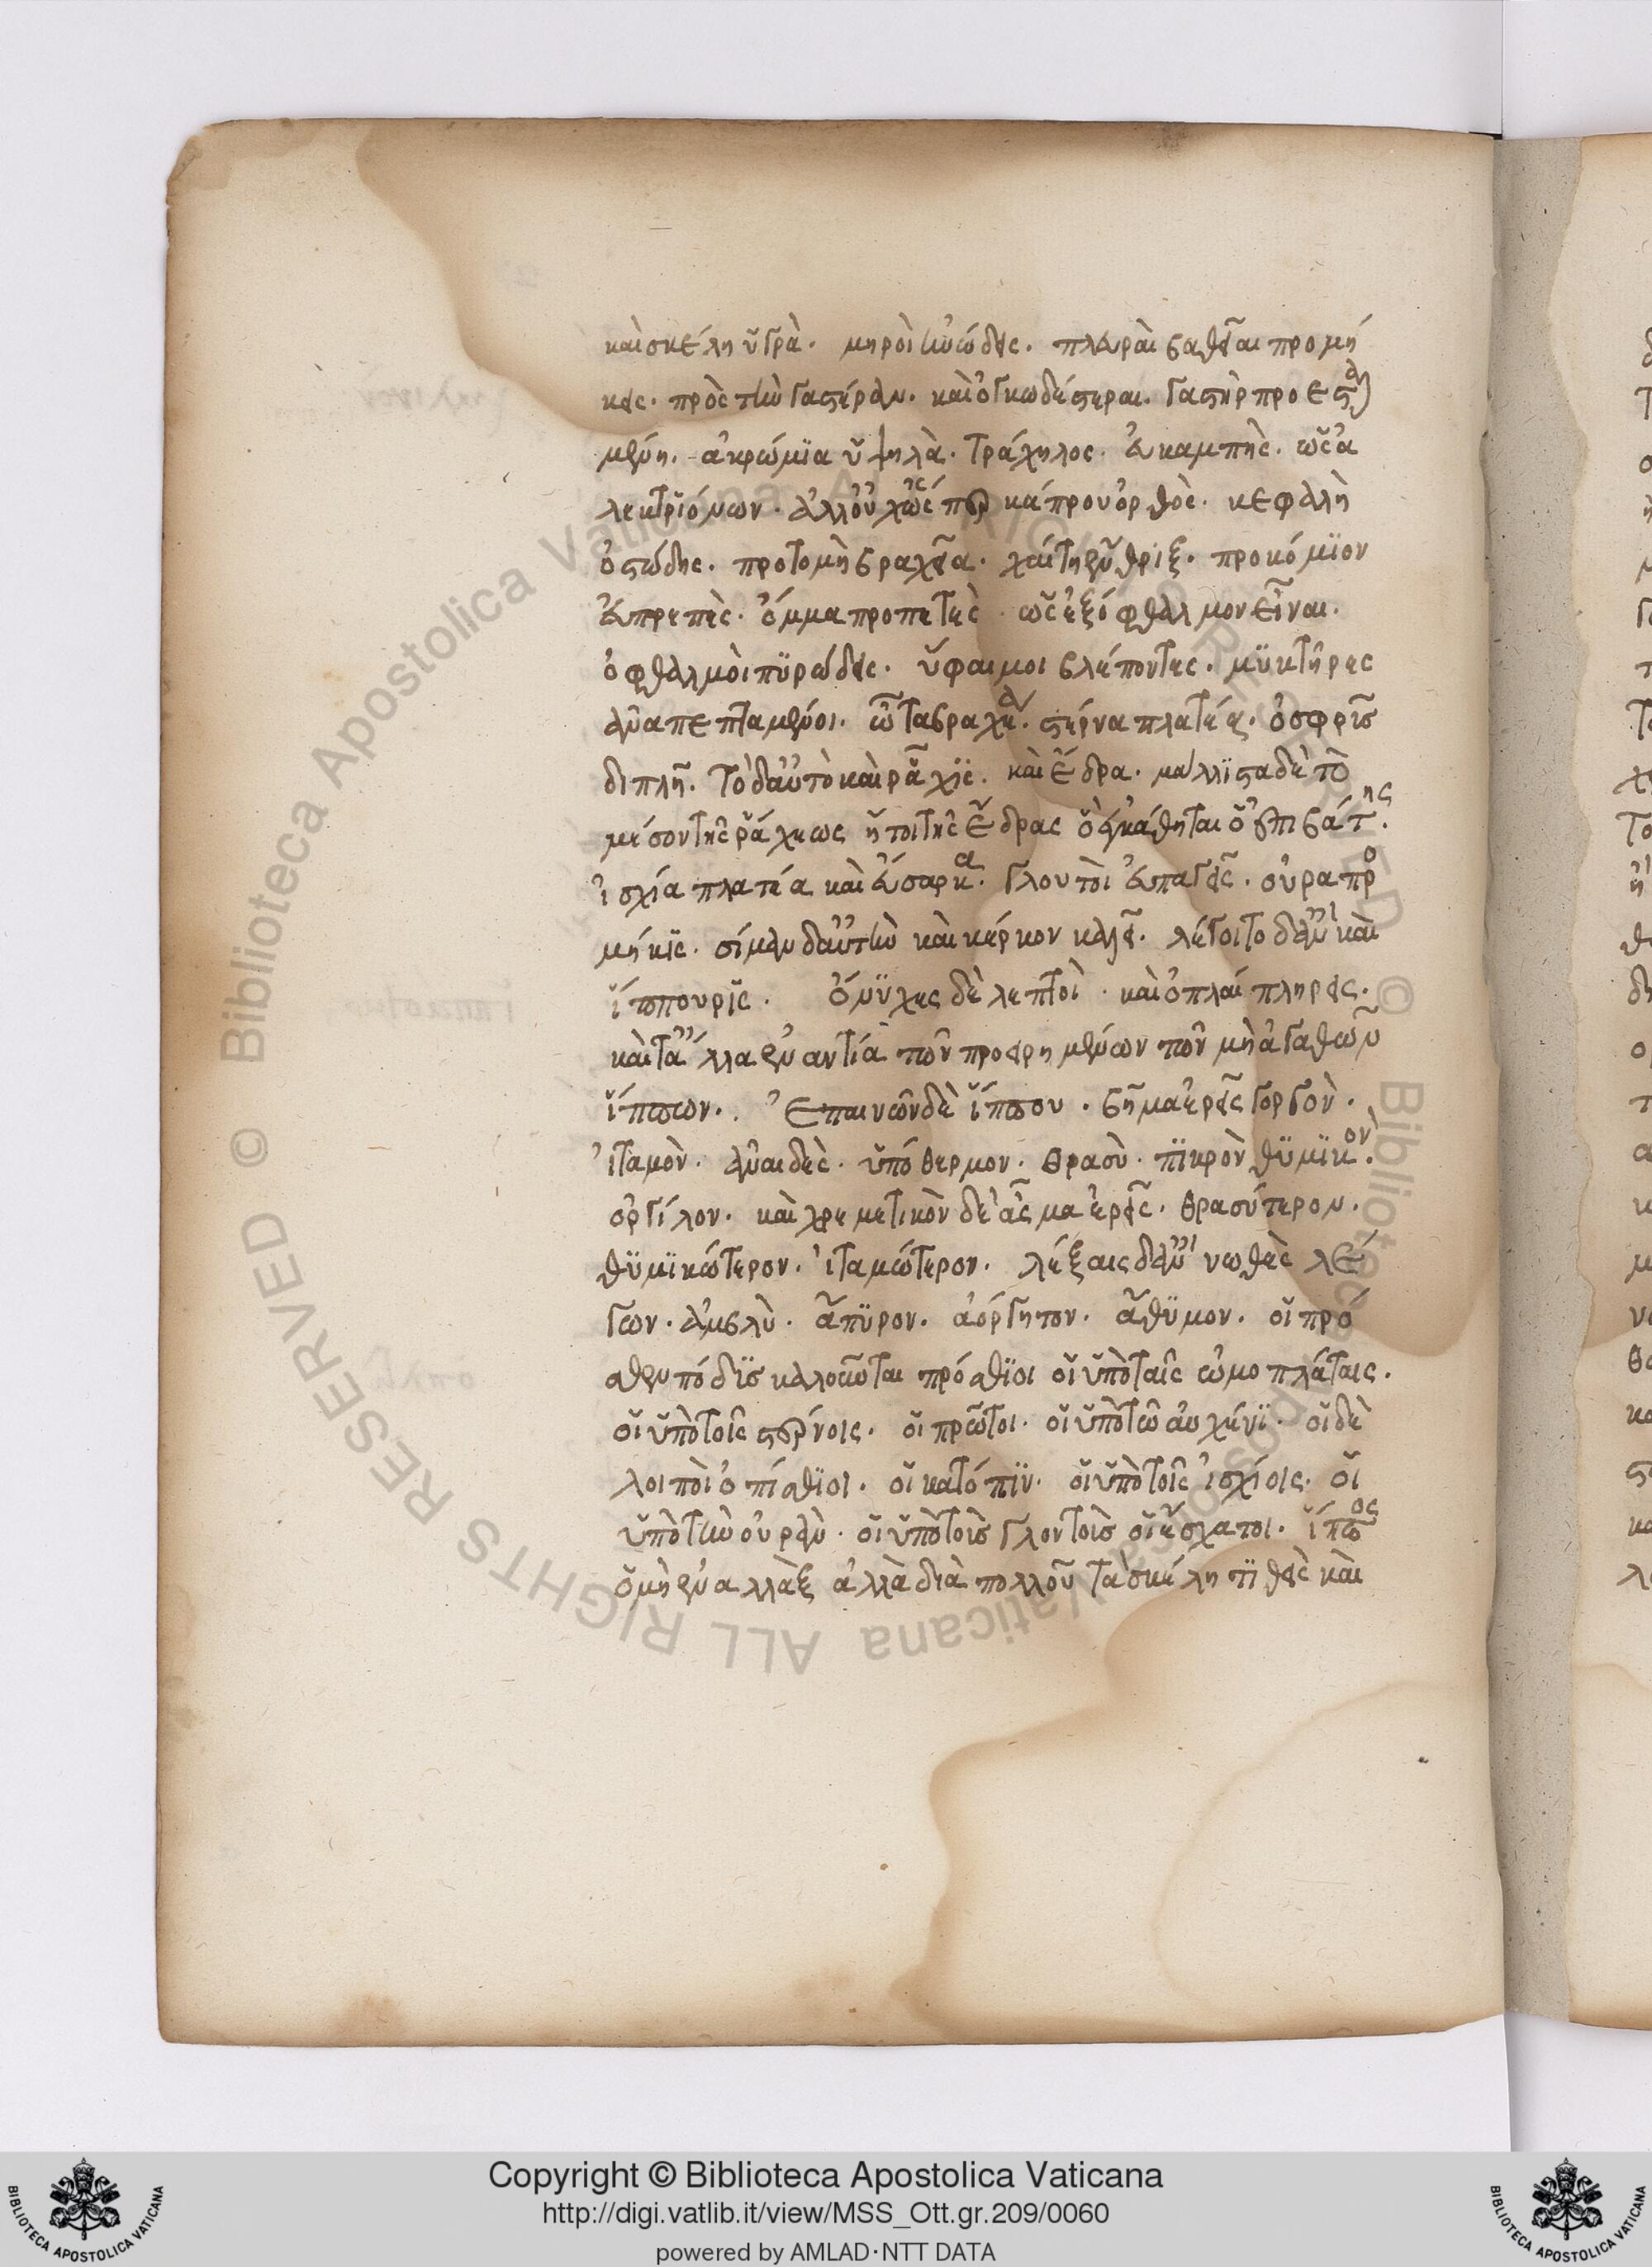 καὶ σκέλη ὑγρὰ. μηροὶ μυώδεις. πλευραὶ βαθεῖαι προμή
κεις. πρὸς τὴν γαστέραν. καὶ ὀγκωδέστεραι. γαστὴρ προεσταλ
μένη. ἀκρώμϊα ὑψηλὰ. τράχηλος. εὐκαμπὴς. ὡς ἀ
λεκτρϊόνων. ἀλλ' οὐχ ὥσπερ κάπρου ὀρθὸς. κεφαλὴ
ὀστώδης. προτομὴ βραχεῖα. χαίτη εὔθριξ. προκόμϊον
εὐπρεπὲς. ὄμμα προπετὲς. ὡς ἐξόφθαλμον εἶναι.
ὀφθαλμοὶ πϋρώδεις. ὕφαιμοι βλέποντες. μϋκτῆρες
ἀναπεπταμένοι. ὦτα βραχέα. στέρνα πλατέα. ὀσφρῖς
διπλῆ. τὸ δ' αὐτὸ καὶ ῥάχϊς. καὶ ἕδρα. μάλλϊστα δὲ τὸ
μέσον τῆς ῥάχεως ἤτοι τῆς ἕδρας οὗ ἐγκάθηται ὁ ἐπιβάτης.
ἰσχία πλατέα καὶ εὔσαρκα. γλουτοὶ εὐπαγεῖς. οὐρα προ
μήκϊς. σίμαν δ' αὐτὴν καὶ κέρκον καλεῖ. λέγοιτο δ' ἂν καὶ
ἵππουρϊς. ὄνϋχες δὲ λεπτοὶ. καὶ ὁπλαί πλήρεις.
καὶ τἄλλα ἐναντία τῶν προειρημένων τῶν μὴ ἀγαθῶν
ἵππων. Ἐπαινῶν δὲ ἵππου. βῆμα ἐρεῖς γοργὸν.
ἰταμὸν. ἀναιδὲς. ὑπόθερμον. θρασὺ. πϊκρὸν θϋμϊκὸν.
ὀργίλον. καὶ χρεμετικὸν δὲ ᾆσμα ἐρεῖς. θρασύτερον.
θϋμϊκώτερον. ἰταμώτερον. λέξαις δ' ἂν νωθὲς λέ
γων. ἀμβλὺ. ἄπϋρον. ἀόργητον. ἄθϋμον. οἱ πρό
σθεν πόδϊς καλοῦνται πρόσθϊοι οἱ ὑπὸ ταῖς ὠμοπλάταις.
οἱ ὑπὸ τοῖς στέρνοις. οἱ πρῶτοι. οἱ ὑπὸ τῶ αὐχένϊ. οἱ δὲ
λοιποὶ ὀπίσθϊοι. οἱ κατόπϊν. οἱ ὑπὸ τοῖς ἰσχίοις. οἱ
ὑπὸ τὴν οὐρὰν. οἱ ὑπὸ τοῖς γλουτοῖς οἱ ἔσχατοι. ἵππος
ὁ μὴ ἐναλλὰξ ἀλλὰ διὰ πολλοῦ τὰ σκέλη τϊθεὶς καὶ
Copyright © Biblioteca Apostolica Vaticana
http://digi.vatlib.it/view/MSS_Ott.gr.209/0060
powered by AMLAD·NTT DATA